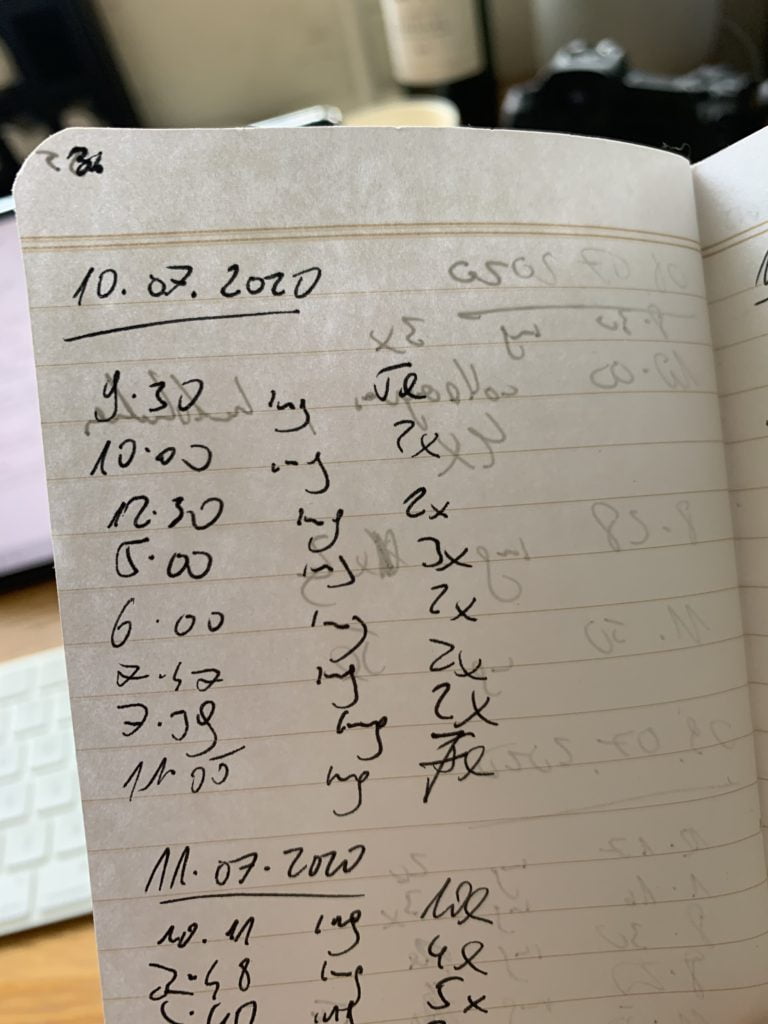 10.07.2020
9.30 ing 5x
10.00 ing 2x
12.30 ing 2x
5.00 ing 3x
6.00 ing 2x
7.47 ing 2x
7.59 ing 2x
11.05 ing
11.07.2020
10.11 ing 10x
2.48 ing 4x
ing 5x